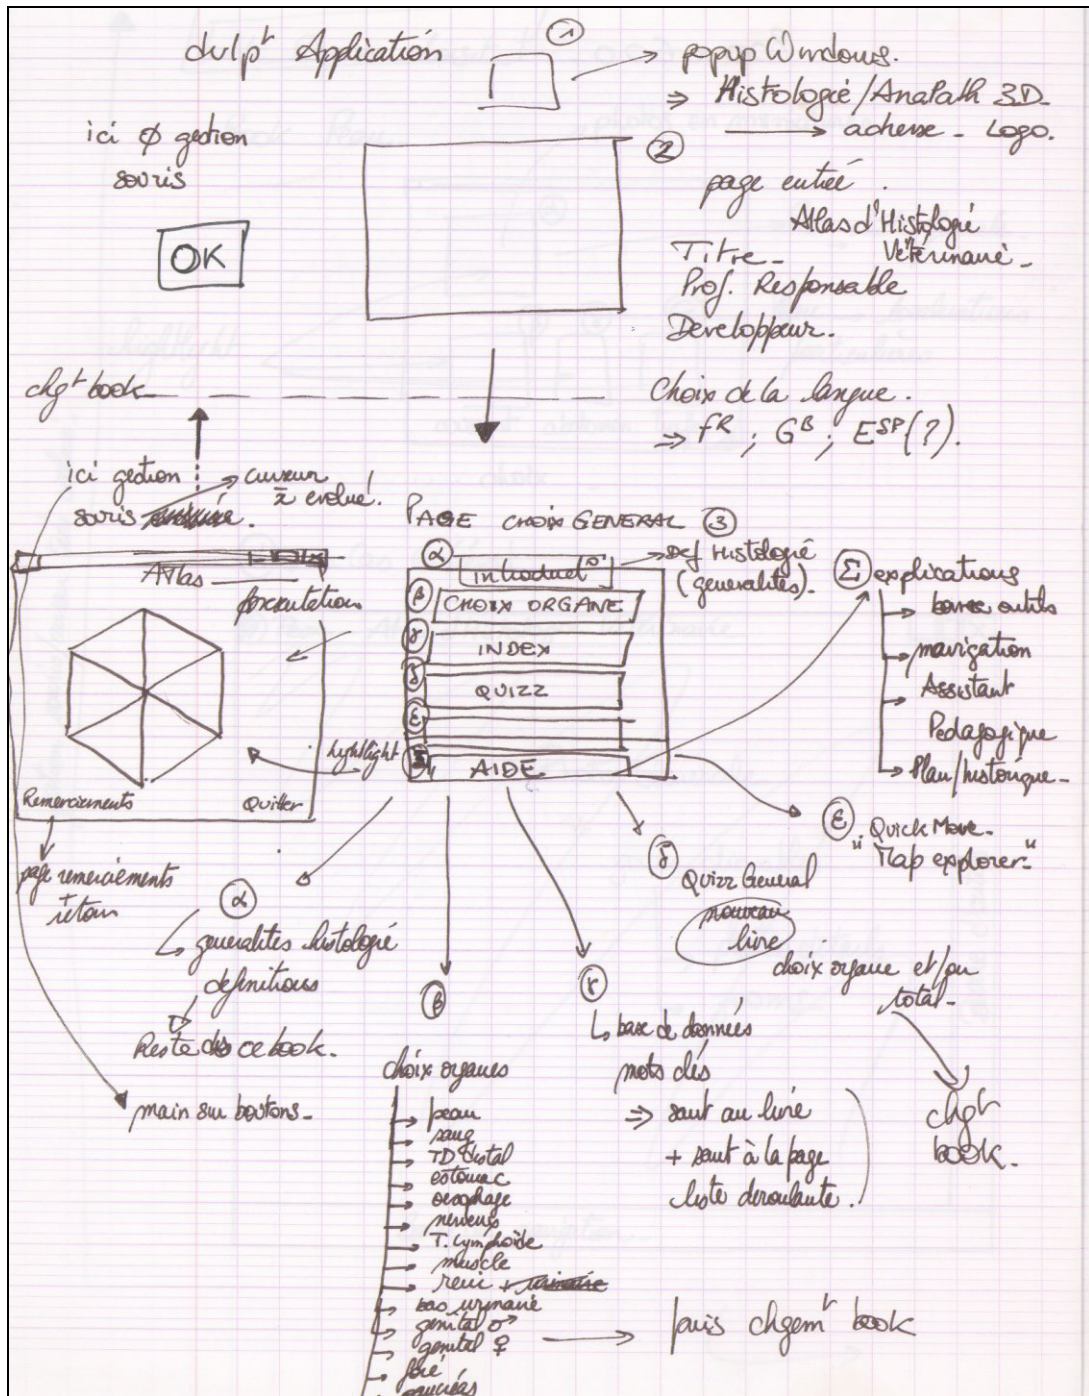 dvlpt Application
①
popup Windows.
⇒ Histologie/AnaPath 3D.
→ adresse - Logo.
ici ∅ gestion
souris
OK
②
page entrée.
Atlas d'Histologie
Vétérinaire -
Titre -
Prof. Responsable
Developpeur.
chgt book
Choix de la langue.
⇒ FR ; GB ; ESP(?).
ici gestion
souris
curseur
evolué!
PAGE CHOIX GENERAL ③
Atlas
presentation
Remerciements
Quitter
page remerciements
+ retour
hightlight
α
introduct°
→ Def Histologie
(generalités).
β
CHOIX ORGANE
γ
INDEX
δ
QUIZZ
ε
AIDE
Σ explications
barre outils
navigation
Assistant
Pedagogique
Plan/historique -
ε Quick Move -
"Map explorer"
δ
Quizz General
nouveau
livre
choix organe et/ou
total -
chgt
book.
α
generalites histologie
definitions
Reste ds ce book.
main sur boutons -
β
choix organes
peau
sang
TD distal
estomac
oesophage
nerveux
T. Lymphoïde
muscle
rein + urinaire
bas urinaire
genital ♂
genital ♀
foie
pancréas
→ puis chgemt book
γ
base de données
mots clés
⇒ saut au livre
+ saut à la page
liste deroulante.